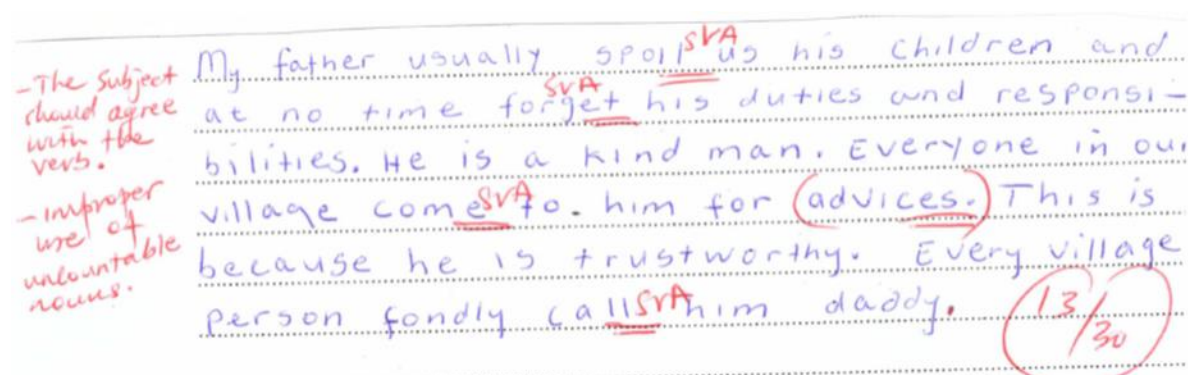 -The Subject
should agree
with the
verb.
-Improper
use of
uncountable
nouns.
My father usually spoil us his children and
SVA
at no time forget his duties and responsi-
SVA
bilities. He is a kind man. Everyone in our
village come to. him for advices. This is
SVA
because he is trustworthy. Every village
person fondly call him daddy.
SVA
13/30